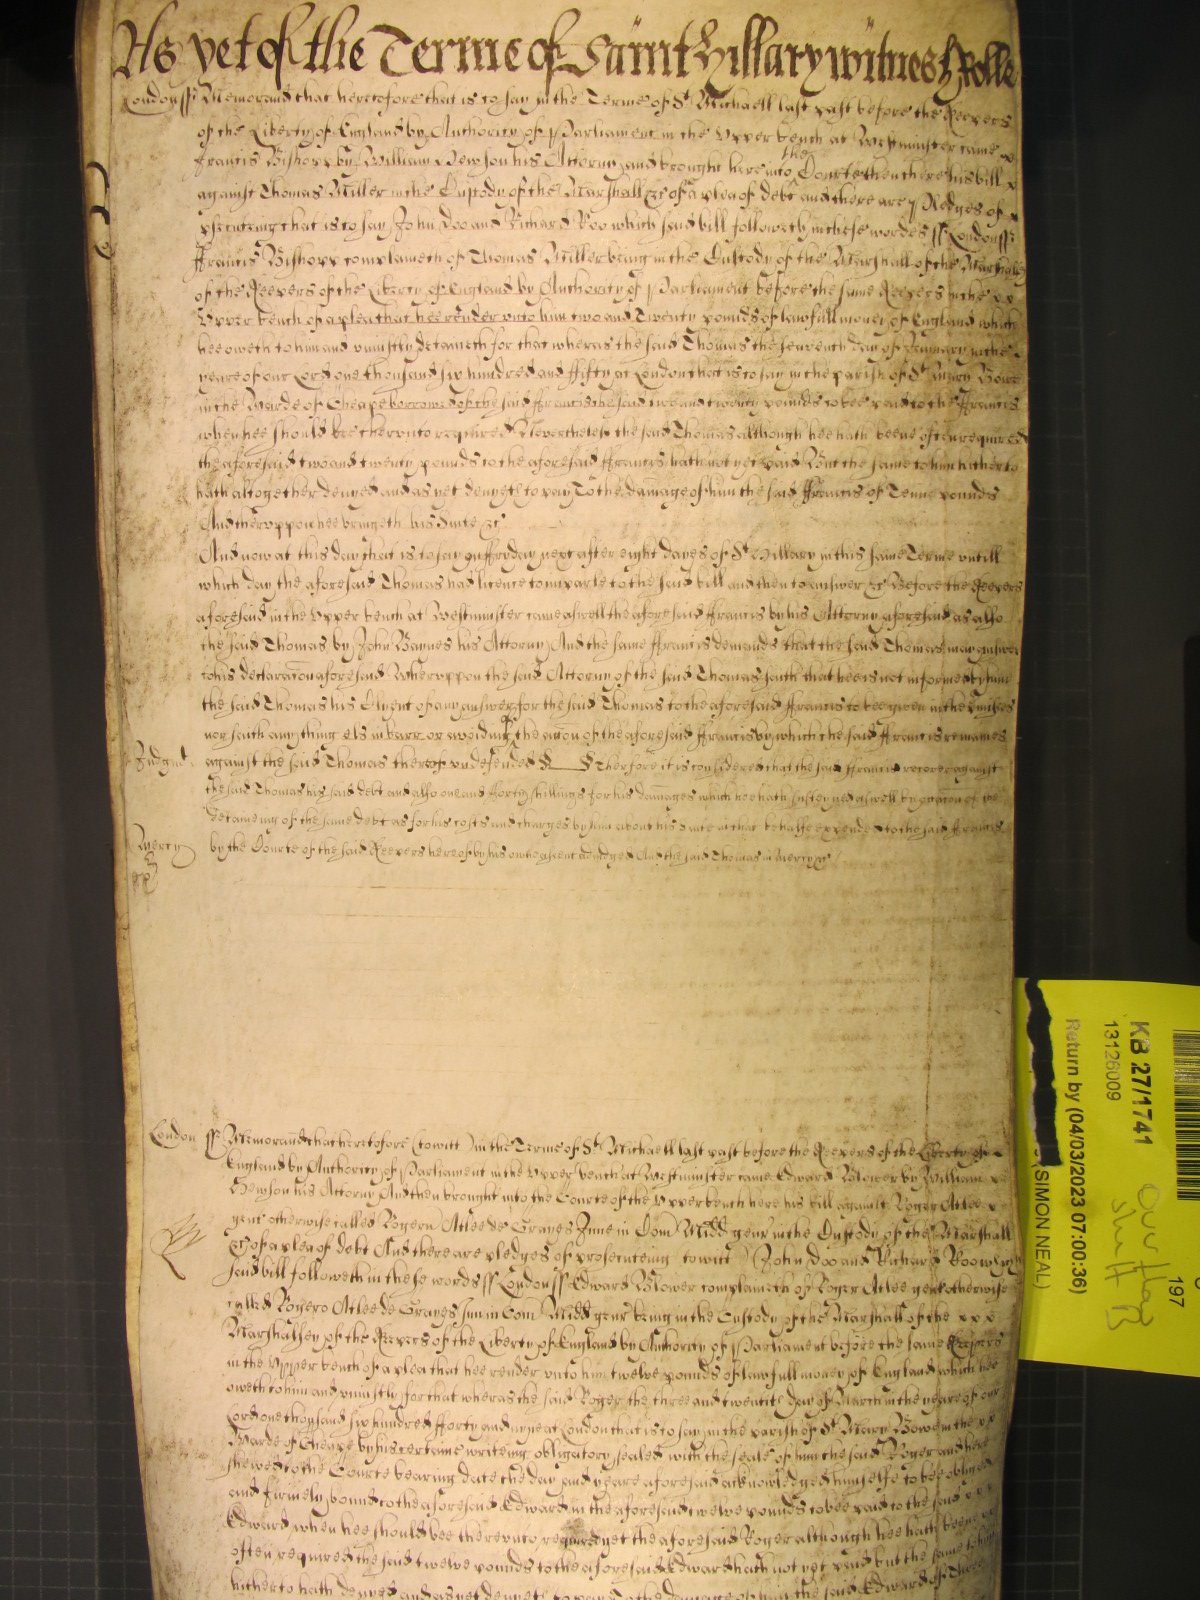 As yet of the Terme of Saint Hillary witnes H Rolle
London ss Memorand that heretofore that is to say in the Terme of St Michaell last past before the Keepers
of the Liberty of England by Authority of Parliament in the Upper bench at Westminster came
Francis Bishopp by William Hewson his Attorny and brought here into the Courte then there his bill
against Thomas Miller in the Custody of the Marshall &c of a plea of debt and there are pledges of
prosecuting that is to say John Doo and Richard Roo which said bill followeth in these wordes ss London ss
Francis Bishopp complaineth of Thomas Miller being in the Custody of the Marshall of the Marshalsey
of the Keepers of the Liberty of England by Authority of Parliament before the same Keepers in the
Upper bench of a plea that hee render unto him two and Twenty pounds of lawfull money of England which
hee oweth to him and uniustly detaineth for that wheras the said Thomas the seaventh day of January in the
yeare of our Lord one thousand six hundred and fifty at London that is to say in the parish of St Mary Bowe
in the Warde of Cheape borrowed of the said Francis the said two and twenty pounds to bee paid to the Francis
when hee should bee therunto required Neverthelesse the said Thomas although hee hath beene often required
the aforesaid two and twenty pounds to the aforesaid Francis hath not yet paid But the same to him hitherto
hath altogether denyed and as yet denyeth to pay To the damage of him the said Francis of Tenne pounds
And theruppon hee bringeth his Suite &c
And now at this day that is to say on Fryday next after eight dayes of St Hillary in this same Terme untill
which day the aforesaid Thomas had licence to imparle to the said bill and then to answer &c Before the Keepers
aforesaid in the Upper bench at Westminster came aswell the aforesaid Francis by his Attorny aforesaid as also
the said Thomas by John Baynes his Attorny And the same Francis demands that the said Thomas may answer
to his declaracon aforesaid Wheruppon the said Attorny of the said Thomas saith that hee is not informed by him
the said Thomas his Clyent of any answer for the said Thomas to the aforesaid Francis to bee given in the premises
nor saith any thing els in barr or avoiding of the accon of the aforesaid Francis by which the said Francis remaines
Judgmt against the said Thomas therof undefended Therfore it is considered that the said Francis recover against
the said Thomas his said debt and also one and forty shillings for his damages which hee hath susteyned aswell by occacon of the
deteineing of the same debt as for his costs and charges by him about his suite in that behalfe expended to the said Francis
Mercy by the Courte of the said Keepers here of by his owne assent adiudged And the said Thomas in Mercy &c
London ss Memorand that heretofore (to witt) in the Terme of St Michaell last past before the Keepers of the Liberty of
England by Authority of Parliament in the Upper bench at Westminster came Edward Blower by William
Hewson his Attorny And then brought into the Courte of the Upper bench here his bill against Roger Atlee
gent otherwise called Rogerum Atlee de Grayes Inne in Com Midd gent in the Custody of the Marshall
&c of a plea of debt And there are pledges of prosecuteing to witt John Doo and Richard Roo which
said bill followeth in these words ss London ss Edward Blower complaineth of Roger Atlee gent otherwise
called Rogero Atlee de Grayes Inn in Com Midd gent being in the Custody of the Marshall of the
Marshallsey of the Keepers of the Liberty of England by Authority of Parliament before the same Keepers
in the Upper bench of a plea that hee render unto him twelve pounds of lawfull money of England which hee
oweth to him and uniustly for that wheras the said Roger the three and twentith day of March in the yeare of our
Lord one thousand six hundred forty and nyne at London that is to say in the parish of St Mary Bowe in the
Warde of Cheape by his certaine writeing obligatory sealed with the seale of him the said Roger and here
shewed to the Courte bearing date the day and yeare aforesaid acknowledged himselfe to bee obliged
and firmely bound to the aforesaid Edward in the aforesaid twelve pounds to bee paid to the said
Edward when hee should bee therunto required yet the aforesaid Roger although hee hath beene
often required the said twelve pounds to the aforesaid Edward hath not yet paid but the same to him
hitherto hath denyed and as yet denyeth to pay To the damage of him the said Edward of
KB 27/1741
13126009
Return by (04/03/2023 07:00:36)
(SIMON NEAL)
197